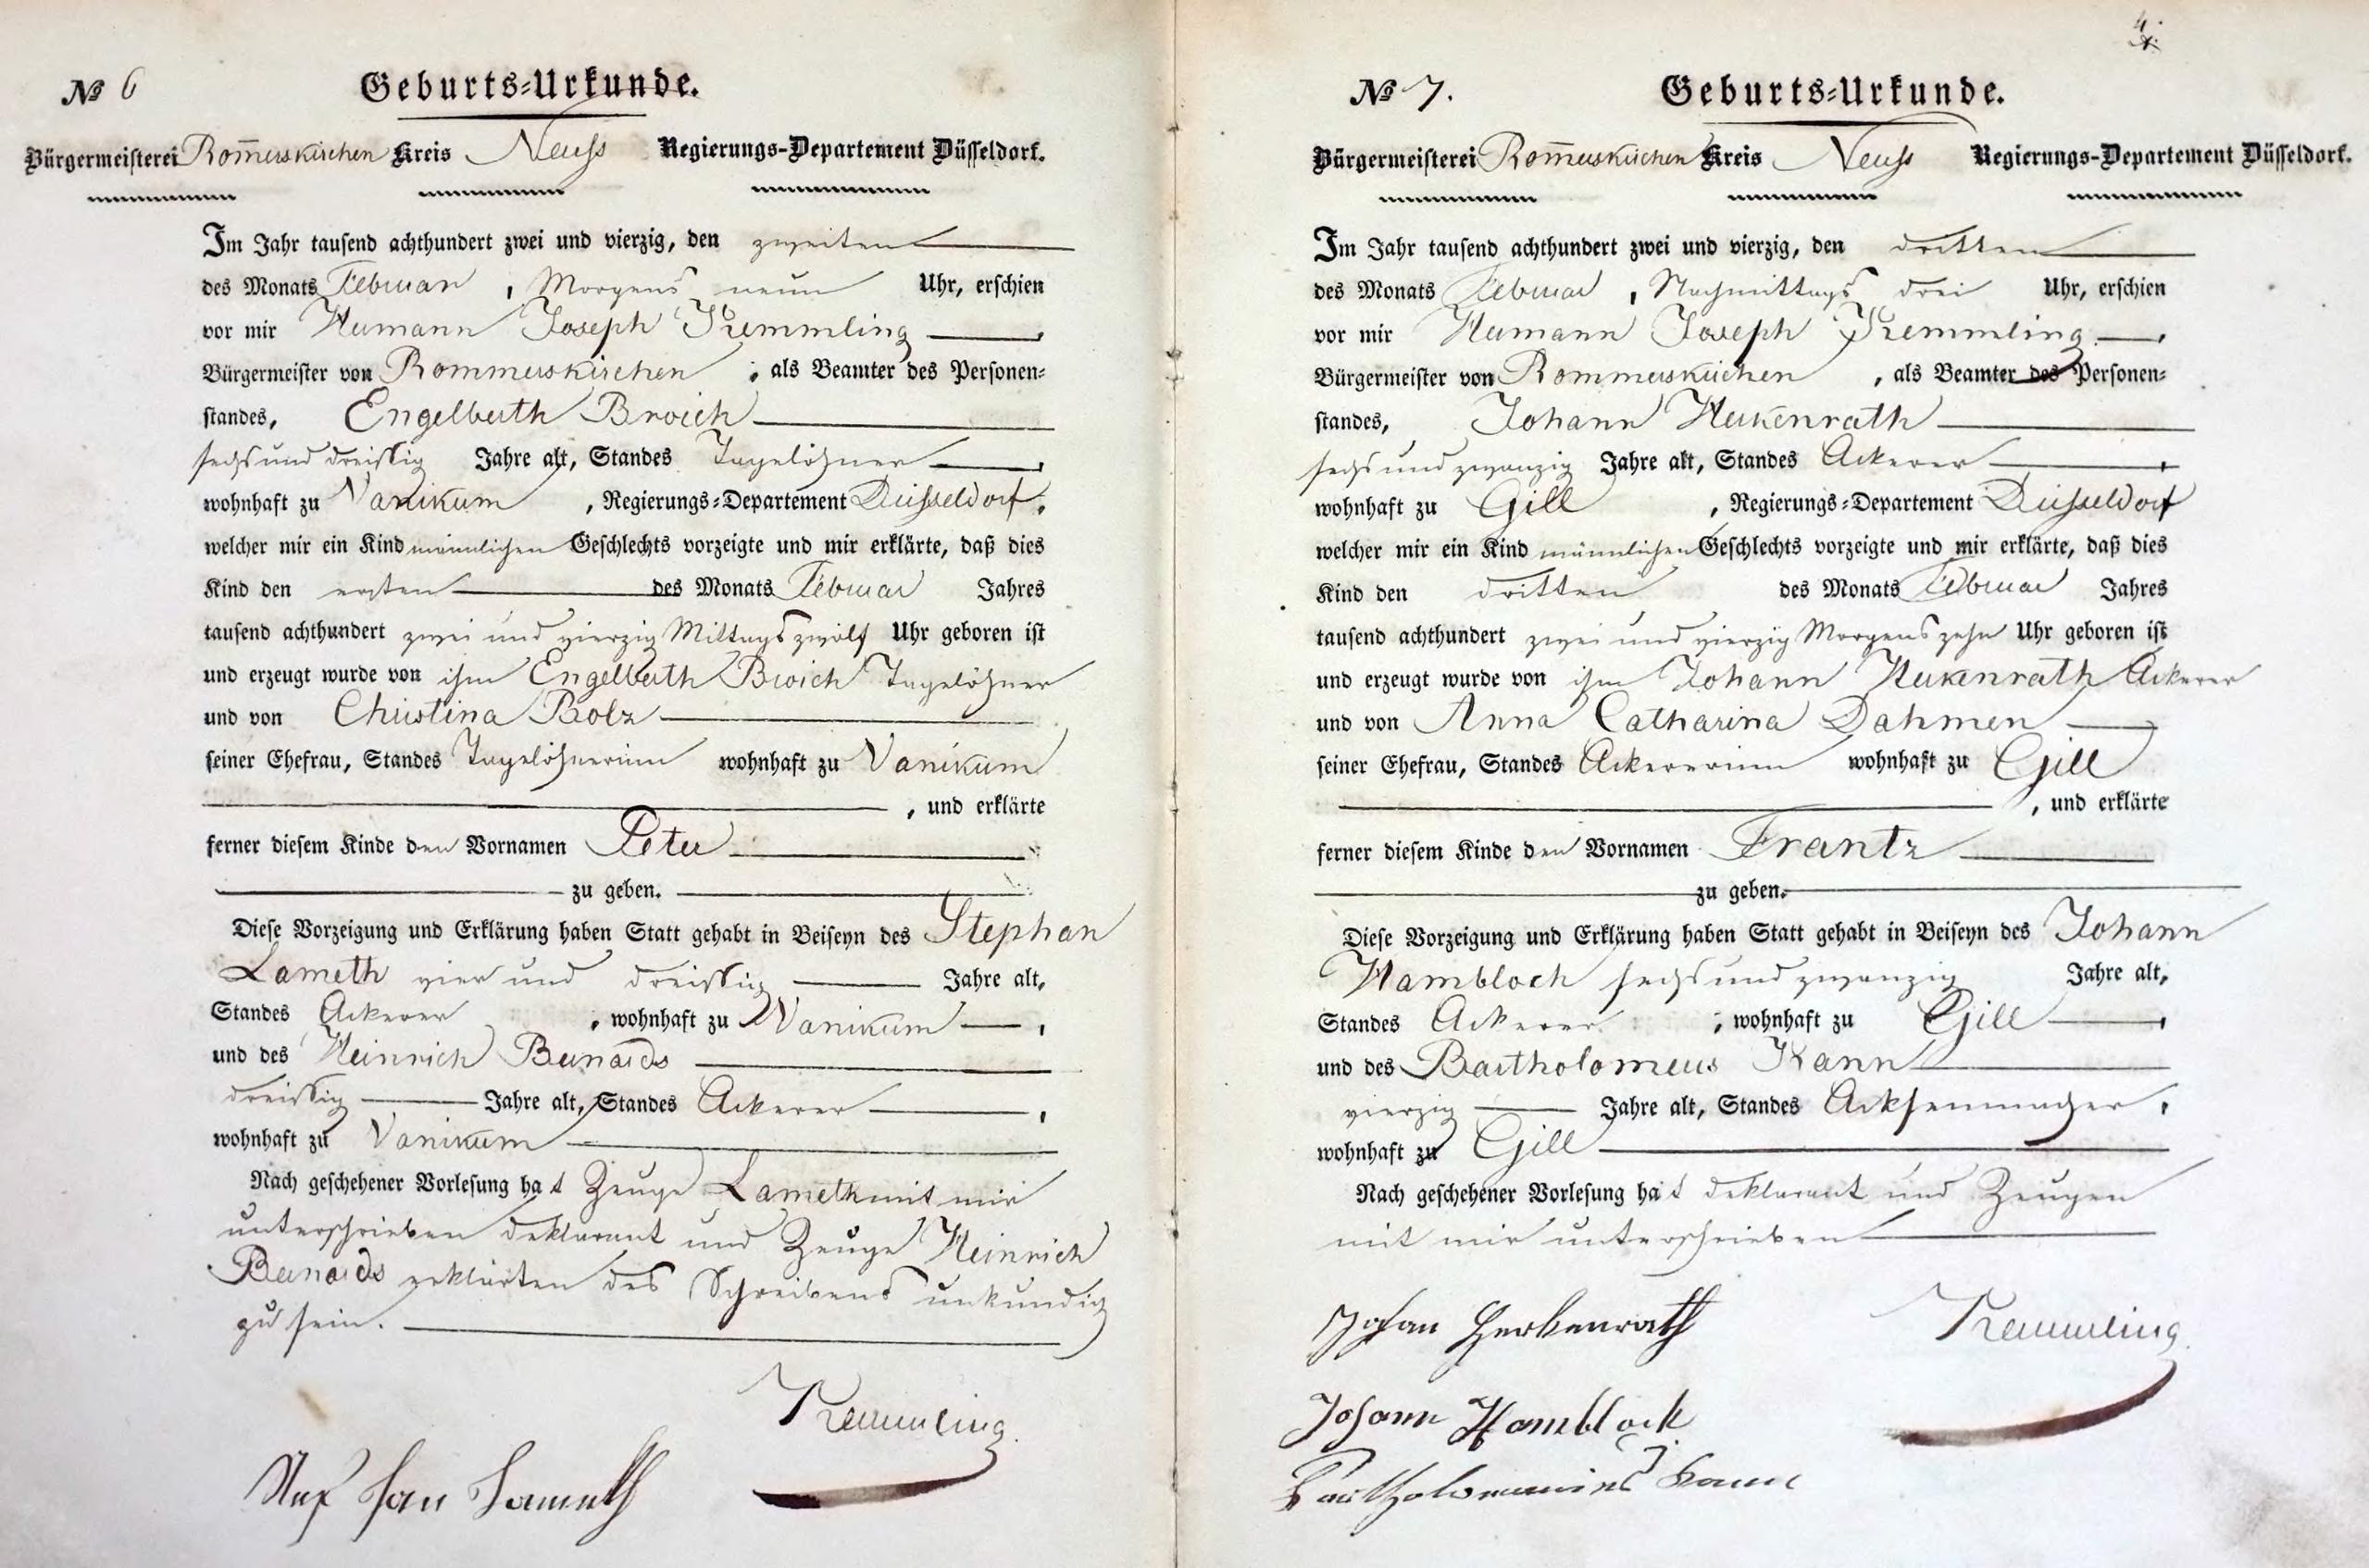 № 6
Geburts-Urkunde.
Bürgermeisterei Rom̅erskirchen Kreis Neuss Regierungs-Departement Düsseldorf.
Im Jahr tausend achthundert zwei und vierzig, den zweiten
des Monats Februar, Morgens neun Uhr, erschien
vor mir Hermann Joseph Kremmling,
Bürgermeister von Rommerskirchen, als Beamter des Personen-
standes, Engelberth Broich
sechs und dreissig Jahre alt, Standes Tagelöhner,
wohnhaft zu Vanikum, Regierungs-Departement Düsseldorf,
welcher mir ein Kind männlichen Geschlechts vorzeigte und mir erklärte, daß dies
Kind den ersten des Monats Februar Jahres
tausend achthundert zwei und vierzig Mittags zwölf Uhr geboren ist
und erzeugt wurde von ihm Engelberth Broich Tagelöhner
und von Christina Bolz
seiner Ehefrau, Standes Tagelöhnerinn wohnhaft zu Vanikum
, und erklärte
ferner diesem Kinde den Vornamen Peter
zu geben.
Diese Vorzeigung und Erklärung haben Statt gehabt in Beiseyn des Stephan
Lameth vier und dreissig Jahre alt,
Standes Ackerer, wohnhaft zu Vanikum,
und des Heinrich Bernards
dreissig Jahre alt, Standes Ackerer,
wohnhaft zu Vanikum
Nach geschehener Vorlesung hat Zeuge Lameth mit mir
unterschrieben Deklarant und Zeuge Heinrich
Bernards erklärten des Schreibens unkundig
zu sein.
Kremmling
Lameth
4.
№ 7.
Geburts-Urkunde.
Bürgermeisterei Rom̅erskirchen Kreis Neuss Regierungs-Departement Düsseldorf.
Im Jahr tausend achthundert zwei und vierzig, den dritten
des Monats Februar, Nachmittags drei Uhr, erschien
vor mir Hermann Joseph Kremmling,
Bürgermeister von Rommerskirchen, als Beamter des Personen-
standes, Johann Herkenrath
sechs und zwanzig Jahre alt, Standes Ackerer,
wohnhaft zu Gill, Regierungs-Departement Düsseldorf
welcher mir ein Kind männlichen Geschlechts vorzeigte und mir erklärte, daß dies
Kind den dritten des Monats Februar Jahres
tausend achthundert zwei und vierzig Morgens zehn Uhr geboren ist
und erzeugt wurde von ihm Johann Herkenrath Ackerer
und von Anna Catharina Dahmen
seiner Ehefrau, Standes Ackererinn wohnhaft zu Gill
, und erklärte
ferner diesem Kinde den Vornamen Frantz
zu geben.
Diese Vorzeigung und Erklärung haben Statt gehabt in Beiseyn des Johann
Hambloch sechs und zwanzig Jahre alt,
Standes Ackerer, wohnhaft zu Gill,
und des Bartholomeus Kann
vierzig Jahre alt, Standes Acksenmacher,
wohnhaft zu Gill
Nach geschehener Vorlesung hat Deklarant und Zeugen
mit mir unterschrieben
Johan Herkenrath Kremmling
Johann Hamblock
Kann